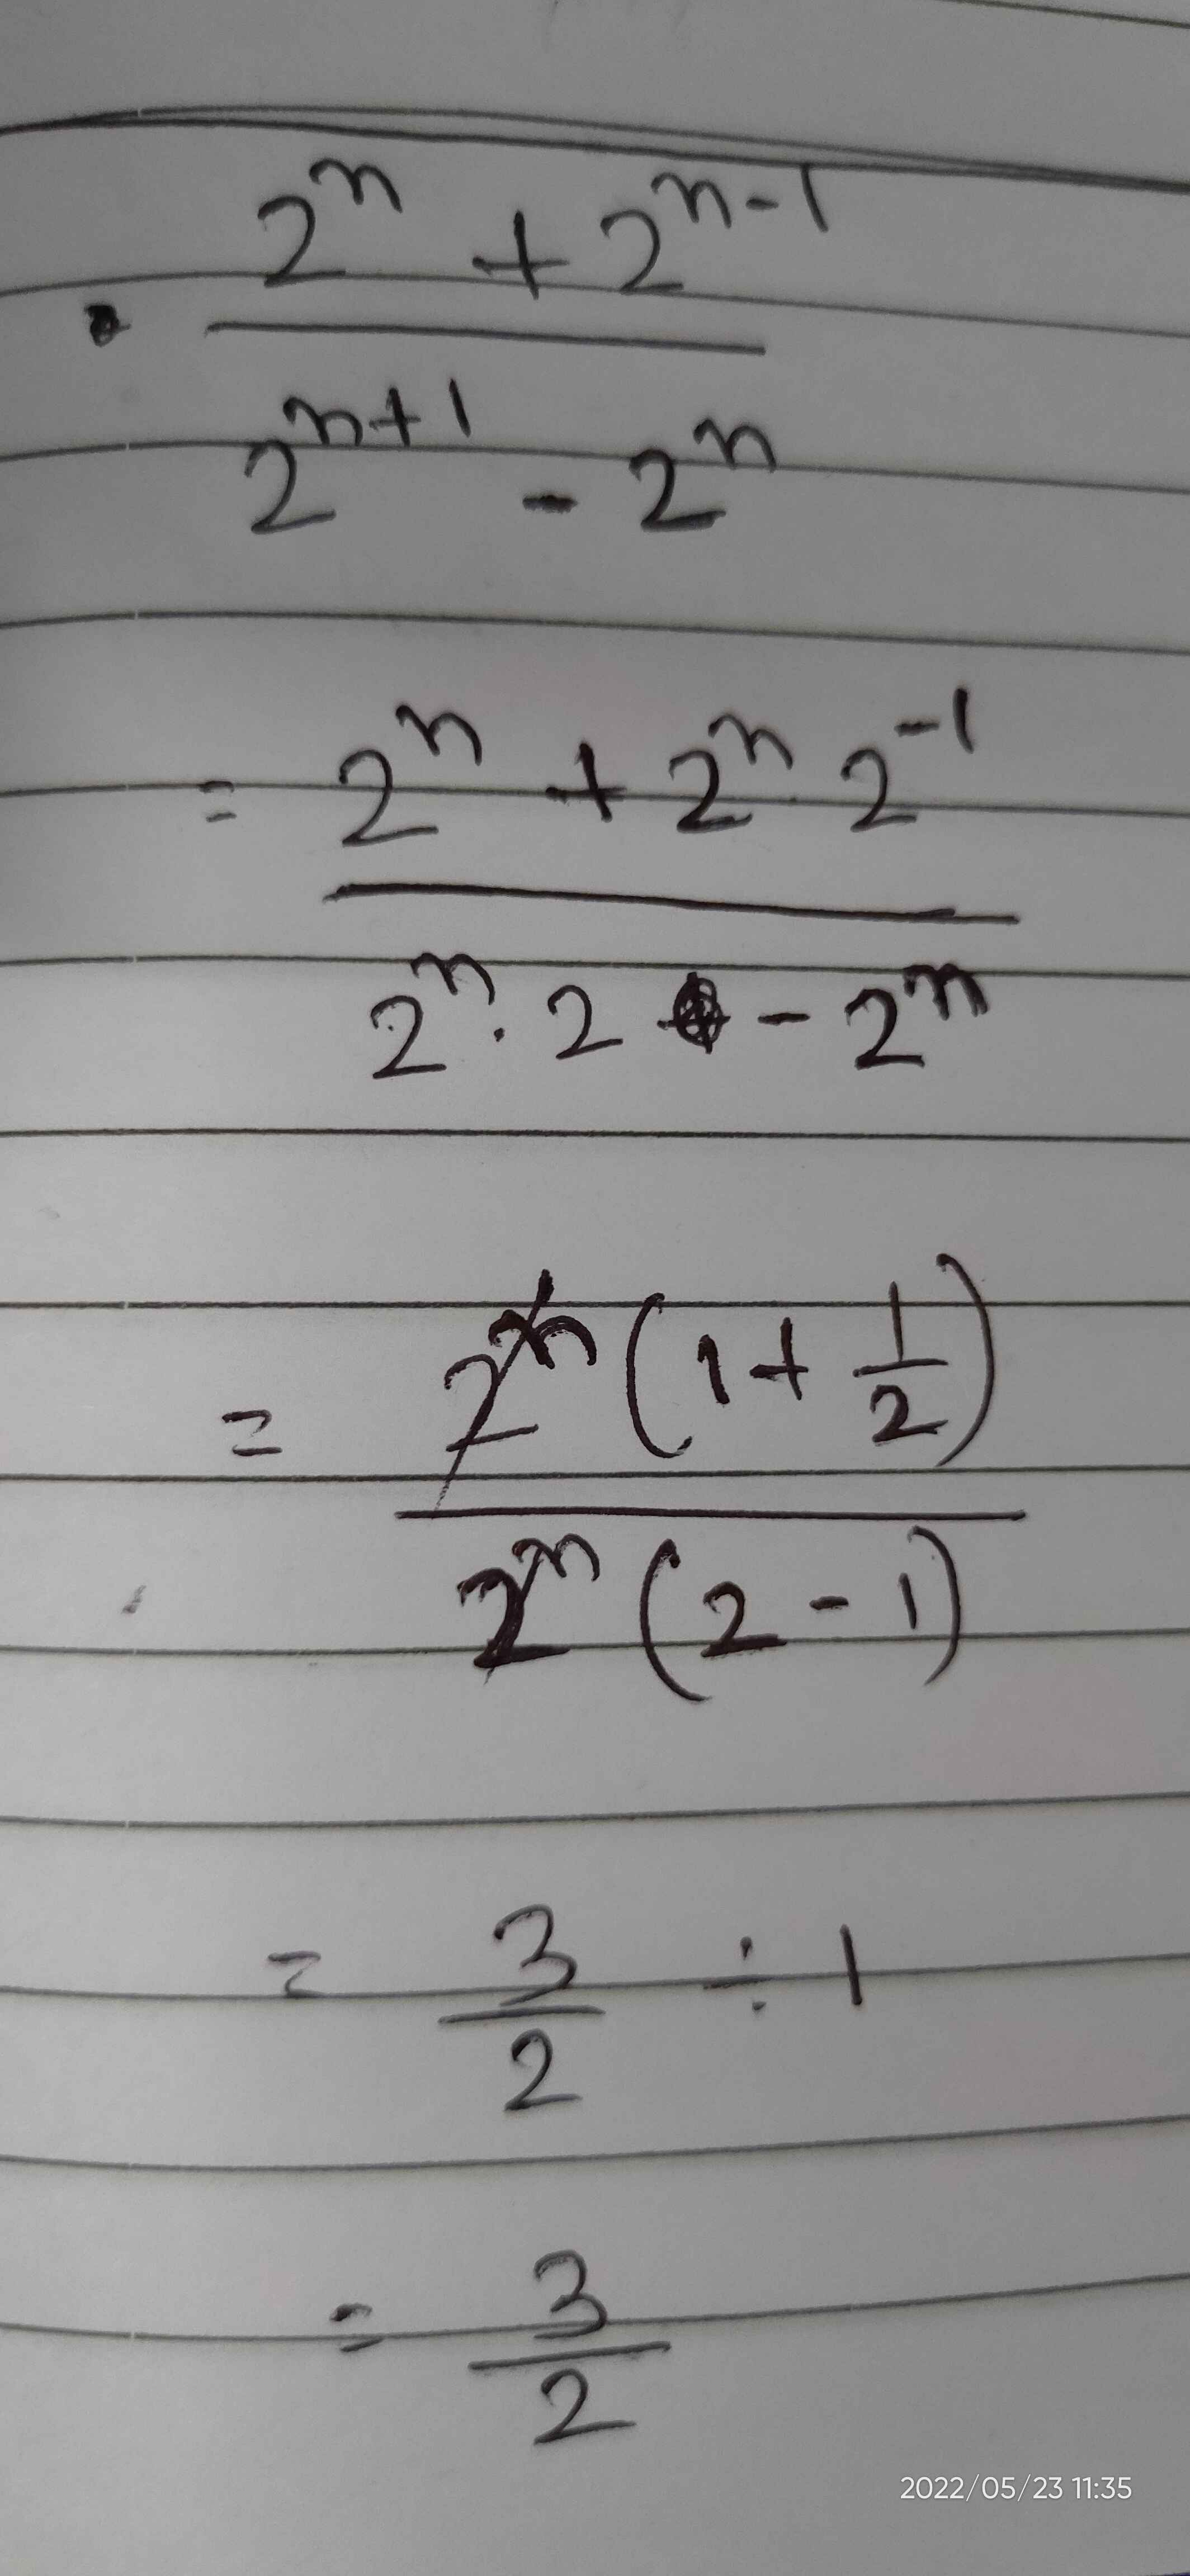 2ⁿ + 2ⁿ⁻¹
2ⁿ⁺¹ - 2ⁿ
= 2ⁿ + 2ⁿ. 2⁻¹
2ⁿ. 2 - 2ⁿ
= 2ⁿ (1 + 1/2)
2ⁿ (2 - 1)
= 3/2 ÷ 1
= 3/2
2022/05/23 11:35